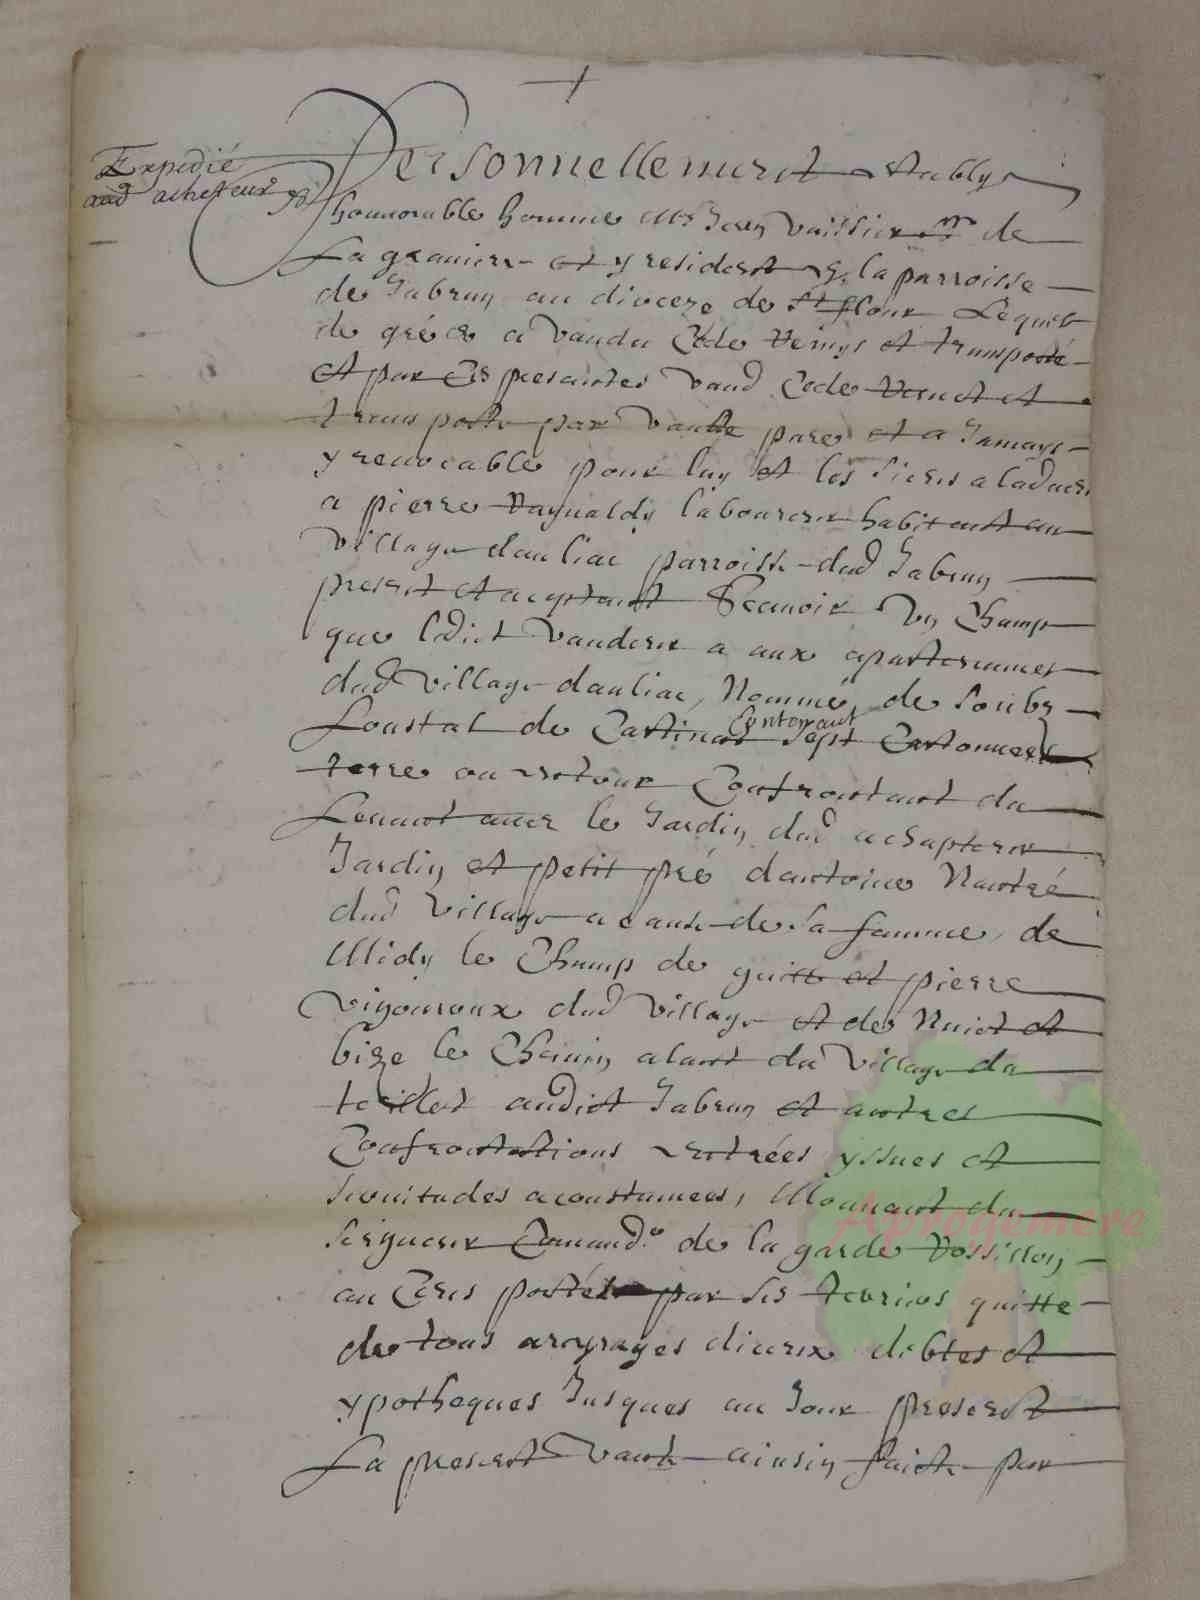 Expedié
aud achepteur
Personnellement estably
honnorable homme Mr Jean Vaissier Mr de
La graniere et y resident en la parroisse
de Jabrun au dioceze de St flour Lequel
de gré a vandu Cede Remys et transporté
et par Ces presantes vand Cede Remet et
transporte par vante pure et a Jamays
yrevocable pour luy et les siens aladvenir
a pierre Raynaldy laboureur habitant au
village dauliac parroisse dud Jabrun
present et aceptant Scavoir Un Champ
que ledict vandeur a aux apartenances
dud village dauliac, Nommé de soubz
Loustal de Contenant sept Cartonnees
terre ou entour Confrontant du
Levant avec le Jardin dud achapteur
Jardin et petit pré dantoine
dud village a cause de sa famme, de
Midy le Champ de guitte et pierre
vigouroux dud village et de Nuict et
bize le Chemin alant du village du
teillet audict Jabrun et autres
Confrontations entrées yssues et
servitudes acoustumees, Mouvant du
seigneur Comandr de la garde Rossillon
au Cens porté par ses terriers quitte
de tous areyrages divers debtes et
ypotheques Jusques au Jour present
La present vante ainsin faicte par
Aprogemere